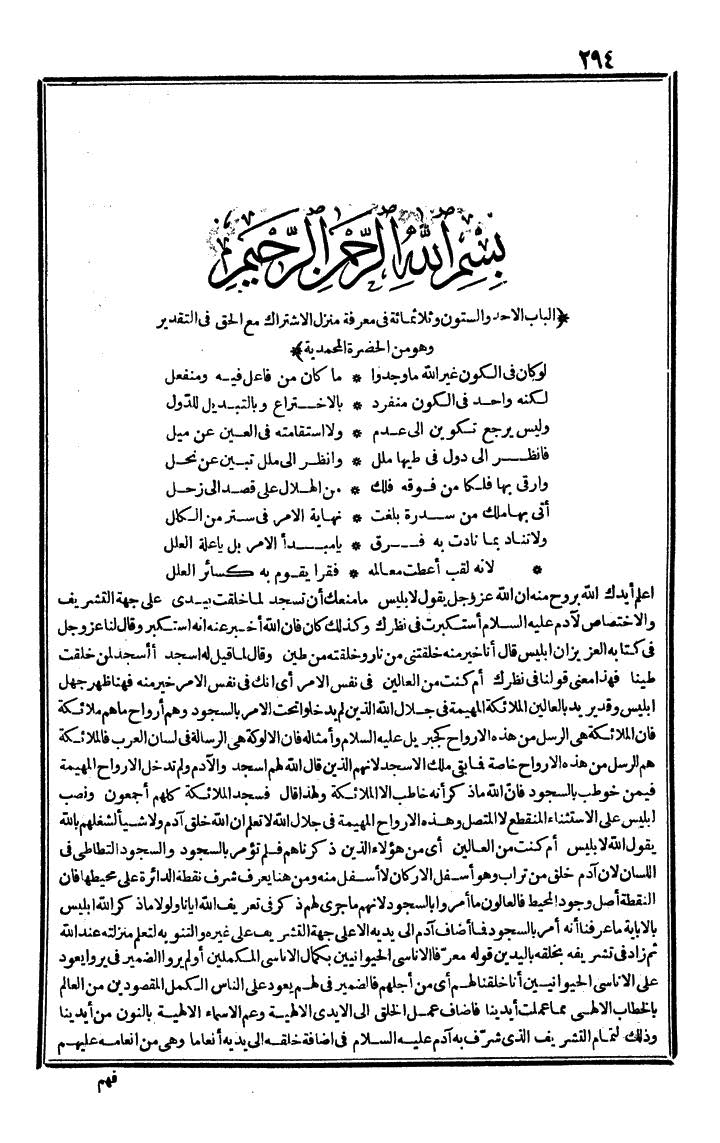 ٢٩٤
بسم الله الرحمن الرحيم
﴿الباب الاحد والستون وثلاثمائة فى معرفة منزل الاشتراك مع الحق فى التقدير
وهو من الحضرة المحمدية﴾
لوكان فى الكون غير الله ما وجدوا * ما كان من فاعل فيه ومنفعل
لكنه واحد فى الكون منفرد * بالاختراع وبالتبديل للدول
وليس يرجع تكوين الى عدم * ولا استقامته فى العين عن ميل
فانظر الى دول فى طيها ملل * وانظر الى ملل تبين عن نحل
وارقى بها فلكا من فوقه فلك * من الهلال على قصد الى زحل
أتى بها ملك من سدرة بلغت * نهاية الامر فى ستر من الكلل
ولا تناد بما نادت به فرق * يا مبدأ الامر بل يا علة العلل
* لانه لقب أعطت معالمه * فقرا يقوم به كسائر العلل
اعلم أيدك الله بروح منه ان الله عز وجل يقول لابليس ما منعك أن تسجد لما خلقت بيدى على جهة التشريف
والاختصاص لآدم عليه السلام أستكبرت فى نظرك وكذلك كان فان الله أخبر عنه انه استكبر وقال لنا عز وجل
فى كتابه العزيز ان ابليس قال أنا خير منه خلقتنى من نار وخلقته من طين وقال لما قيل له اسجد أأسجد لمن خلقت
طينا فهذا معنى قولنا فى نظرك أم كنت من العالين فى نفس الامر أى انك فى نفس الامر خير منه فهنا ظهر جهل
ابليس وقد يريد بالعالين الملائكة المهيمة فى جلال الله الذين لم يدخلوا تحت الامر بالسجود وهم أرواح ما هم ملائكة
فان الملائكة هى الرسل من هذه الارواح كجبريل عليه السلام وأمثاله فان الالوكة هى الرسالة فى لسان العرب فالملائكة
هم الرسل من هذه الارواح خاصة فما بقى ملك الا سجد لانهم الذين قال الله لهم اسجدوا لآدم ولم تدخل الارواح المهيمة
فيمن خوطب بالسجود فان الله ما ذكر أنه خاطب الا الملائكة ولهذا قال فسجد الملائكة كلهم أجمعون ونصب
ابليس على الاستثناء المنقطع لا المتصل وهذه الارواح المهيمة فى جلال الله لا تعلم ان الله خلق آدم ولا شيأ لشغلهم بالله
يقول الله لابليس أم كنت من العالين أى من هؤلاء الذين ذكرناهم فلم تؤمر بالسجود والسجود التطاطى فى
اللسان لان آدم خلق من تراب وهو أسفل الاركان لا أسفل منه ومن هنا يعرف شرف نقطة الدائرة على محيطها فان
النقطة أصل وجود المحيط فالعالون ما أمروا بالسجود لانهم ما جرى لهم ذكر فى تعريف الله ايانا ولولا ما ذكر الله ابليس
بالاباية ما عرفنا أنه أمر بالسجود فما أضاف آدم الى يديه الا على جهة التشريف على غيره والتنويه لتعلم منزلته عند الله
ثم زاد فى تشريفه بخلقه باليدين قوله معرفا الاناسى الحيوانيين بكمال الاناسى المكملين أولم يروا الضمير فى يروا يعود
على الاناسى الحيوانيين أنا خلقنا لهم أى من أجلهم فالضمير فى لهم يعود على الناس الكمل المقصودين من العالم
بالخطاب الالهى مما عملت أيدينا فاضاف عمل الخلق الى الايدى الالهية وعم الاسماء الالهية بالنون من أيدينا
وذلك لتمام التشريف الذى شرف به آدم عليه السلام فى اضافة خلقه الى يديه أنعاما وهى من انعامه عليهم
فهم